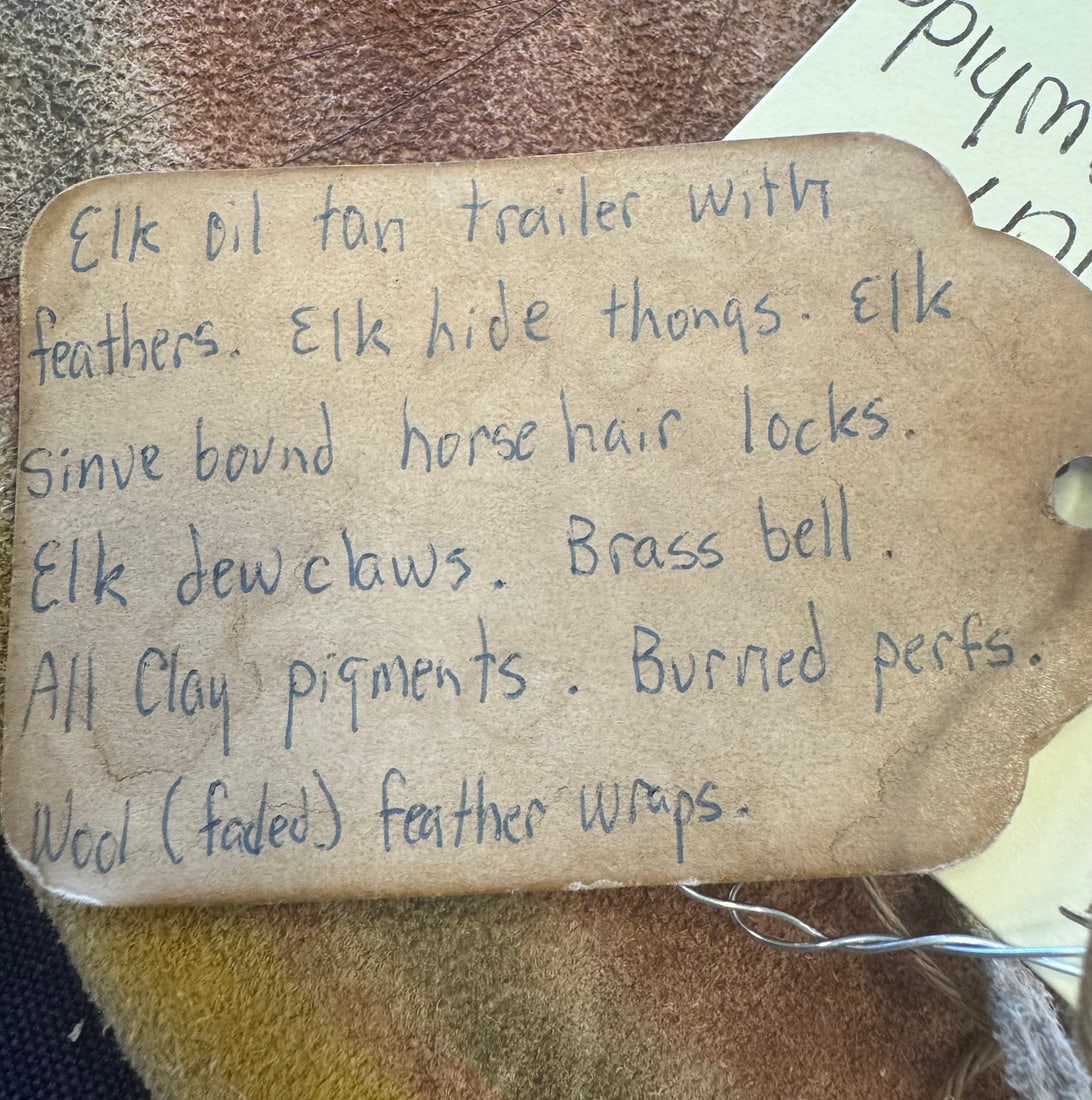 Elk oil tan trailer with
feathers. Elk hide thongs. Elk
sinve bound horse hair locks.
Elk dew claws. Brass bell.
All Clay pigments. Burned perfs.
Wool (faded) feather wraps.